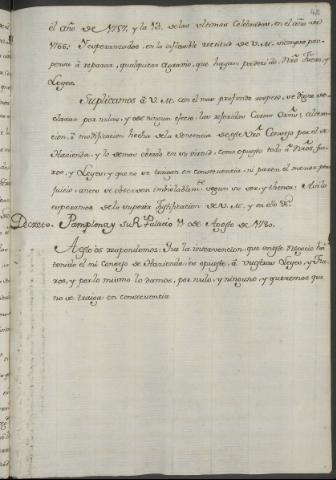 el año de 1757, y la 13. de las ultimas Celebradas, en el año de
1766. Y esperanzados, en la inefable rectitud de V. M. siempre pro-
pensa à reparar, qualquiera agravio, que hayan padecido Nros Fueros, y
Leyes.
Suplicamos à V. M. con el mas profundo respeto, se digne de-
clarar por nulas, y de ningun efecto, las referidas Cartas Ordens, altera-
cion, ò modificacion hecha de la Sentencia de este Vro Consejo por el de
Hacienda, y lo demas obrado en su virtud, como opuesto todo à Nros Fue-
ros, y Leyes; y que no se traigan en consecuencia, ni paren el menor per-
juicio, antes se observen inbiolablemte segun su ser, y thenor: Asi lo
esperamos de la superior Justificacion de V. M. y en ello &a
Decreto. Pamplona y su Rl Palacio 11 de Agosto de 1780.
A esto os respondemos: Que la intervencion, que en este Negocio ha
tenido el mi Consejo de Hacienda, es opuesta, à vuestras Leyes, y Fue-
ros, y por lo mismo la damos, por nula, y ninguna, y queremos que
no se traiga en consecuencia